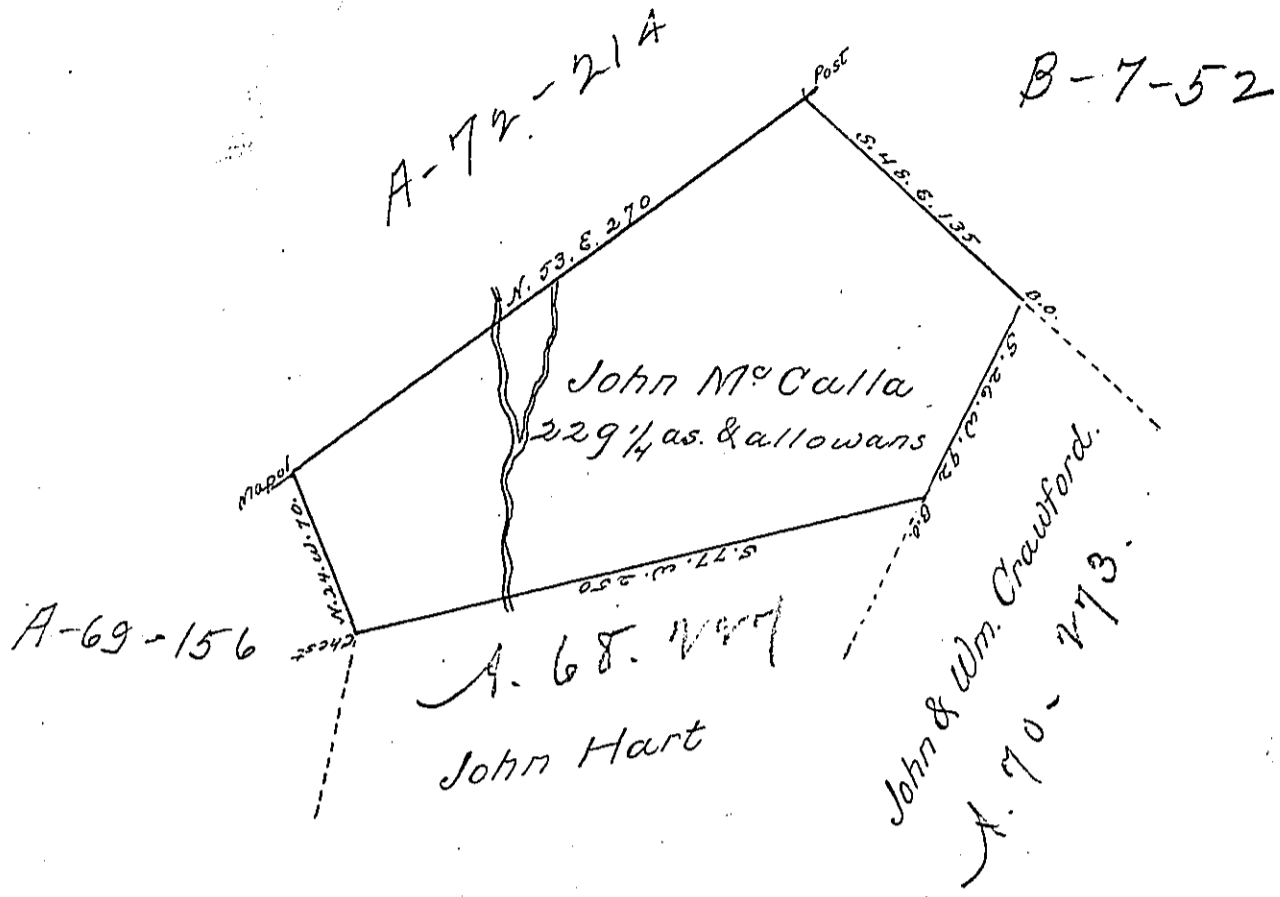 A-72-214
Post
B-7-52
S. 48. E. 135
N. 53. E. 270
B.O.
John McCalla
229 1/4 as. & allowans
S. 26. W. 92
Mapol
N. 24. W. 70.
B.O.
S. 77. W. 250
A-69-156
Chest
A. 68. 227
John Hart
John & Wm. Crawford.
A. 70- 273.